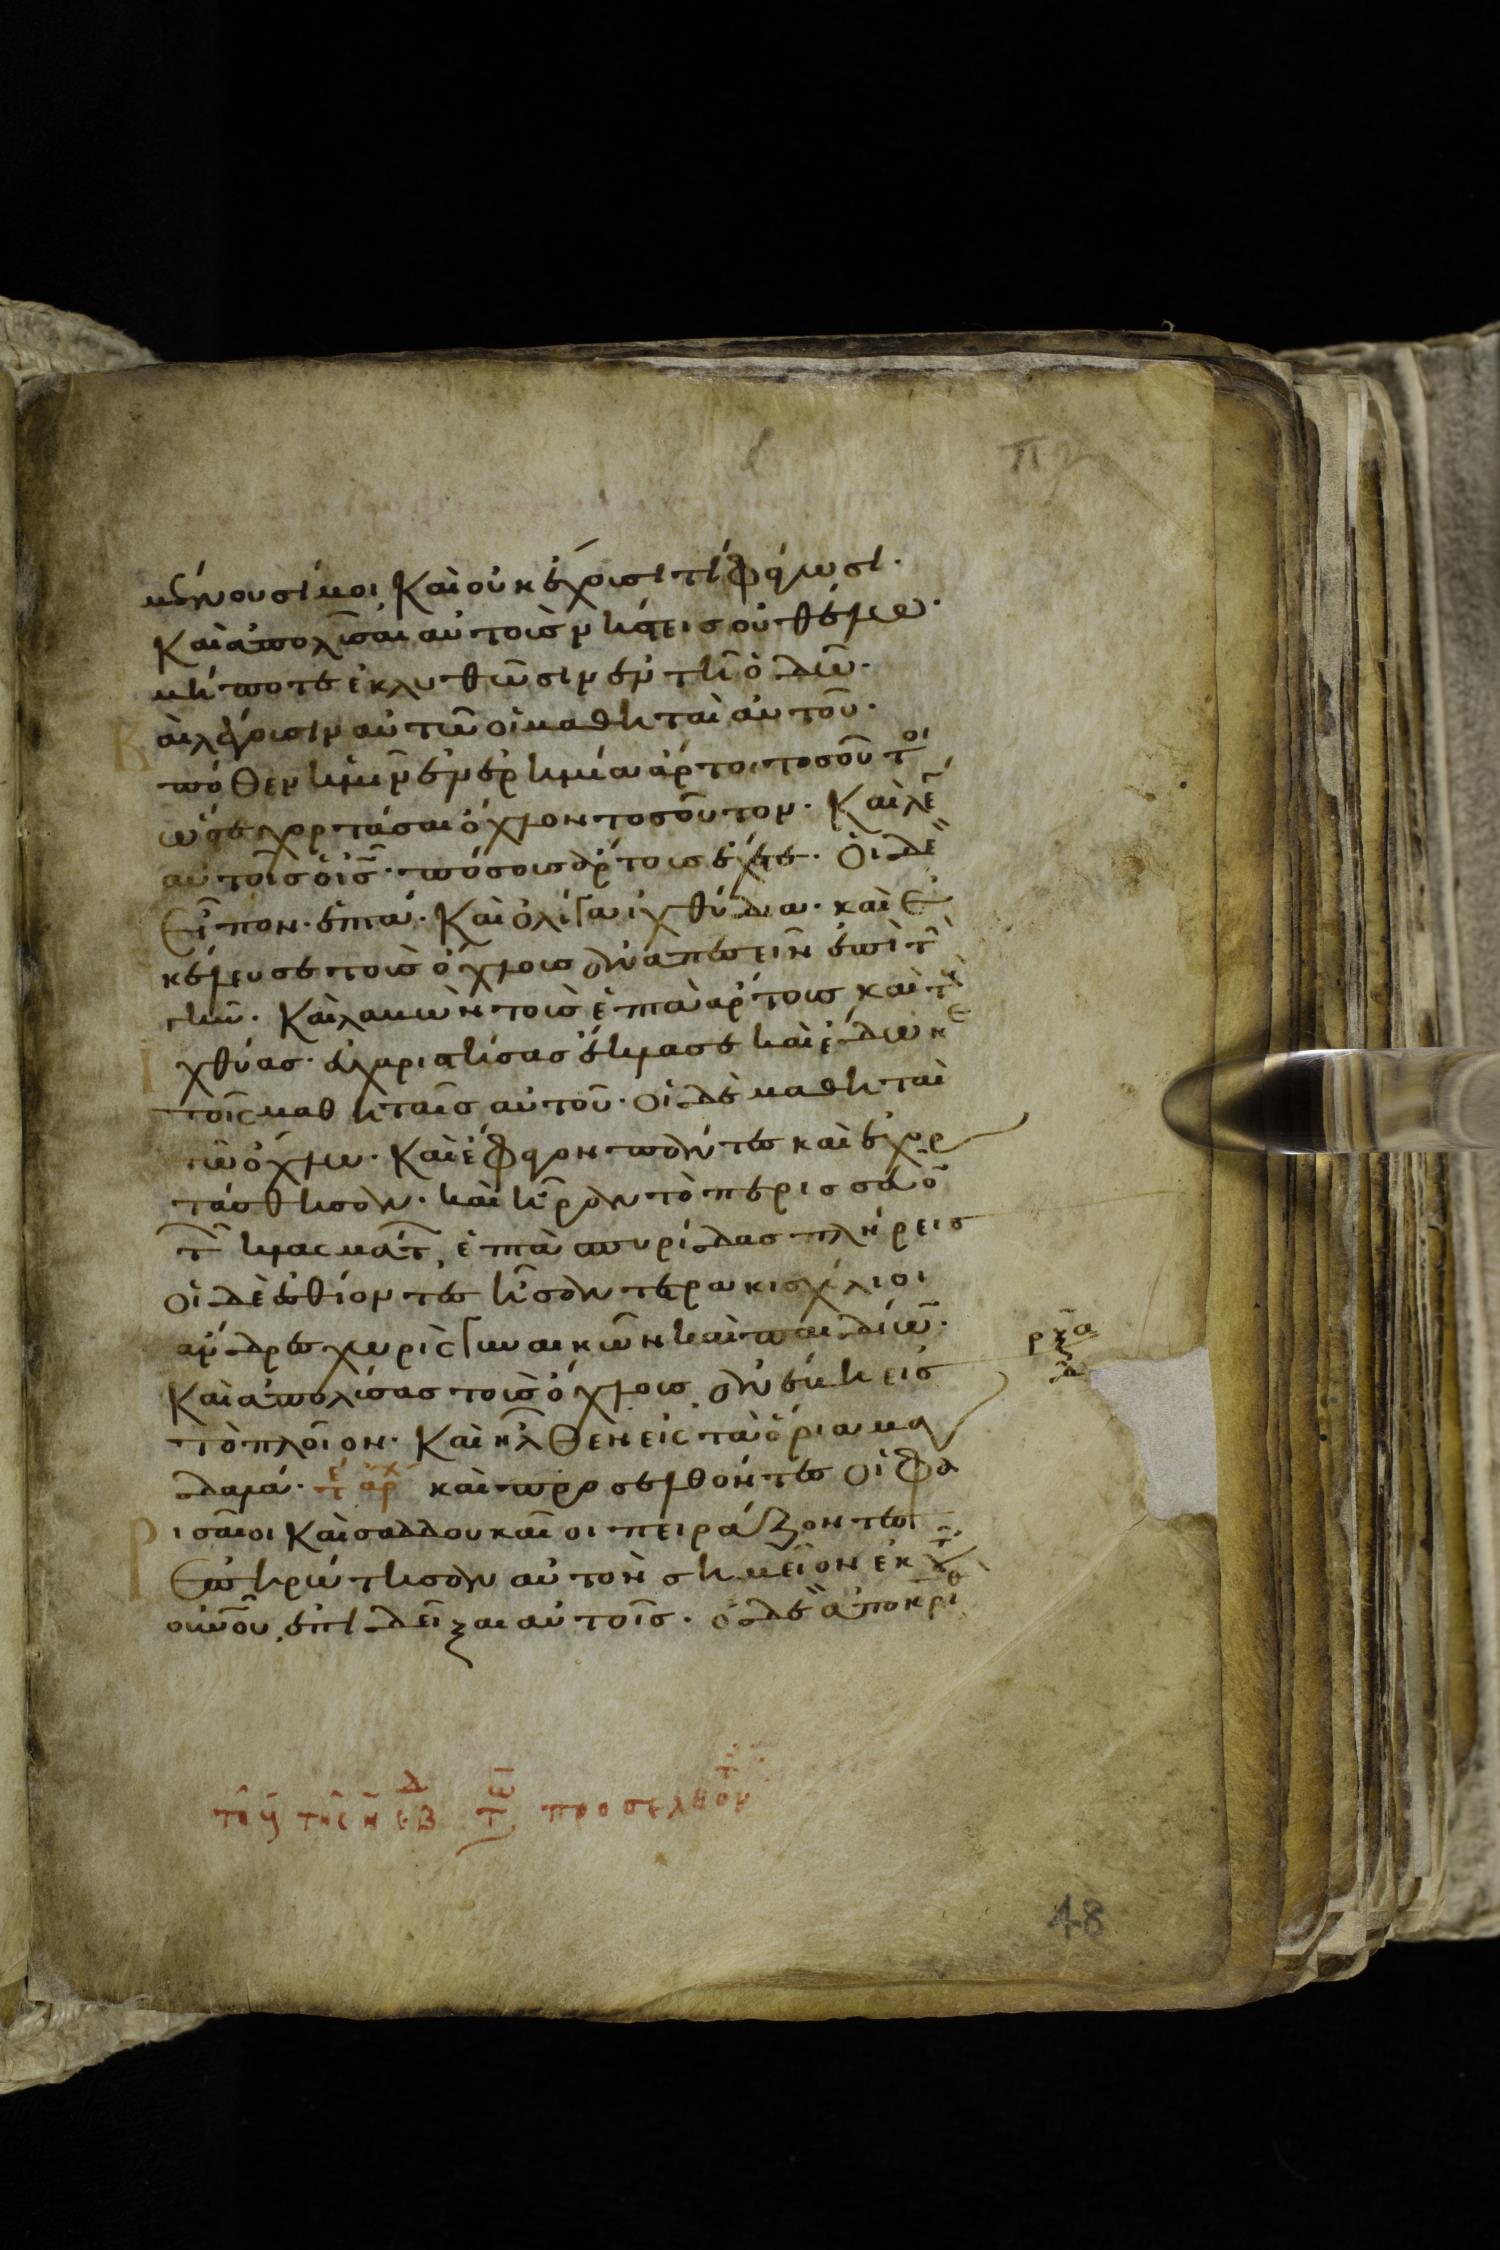 μένουσί μοι καὶ οὐκ ἔχουσι τί φάγωσι·
Καὶ ἀπολῦσαι αὐτοὺς νήστεις οὐ θέλω·
μήποτε ἐκλυθῶσιν ἐν τῆ ὁδῶ·
Κ αὶ λέγουσιν αὐτῶ οἱ μαθηταὶ αὐτοῦ·
πόθεν ἡμῖν ἐν ἐρημία ἄρτοι τοσοῦτοι
ὥστε χορτάσαι ὄχλον τοσοῦτον· Καὶ λέ
αὐτοῖς ὁ ις· πόσους ἄρτους ἔχετε· Οἱ δὲ
εἶπον· ἑπτά· Καὶ ὀλίγα ἰχθύδια· καὶ ἐ
κέλευσε τοὺς ὄχλους ἀναπεσεῖν ἐπὶ τὴ
γῆν· Καὶ λαβὼν τοὺς ἑπτὰ ἄρτους καὶ τοὺ
ἰχθύας· εὐχαριστήσας ἔκλασε καὶ ἔδωκε
τοῖς μαθηταῖς αὐτοῦ· οἱ δὲ μαθηταὶ
τῶ ὄχλω· Καὶ ἔφαγον πάντες καὶ ἐχορ
τάσθησαν· καὶ ἦραν τὸ περισσεῦο
τῶ κλασμάτ, ἑπτὰ σπυρίδας πλήρεις
οἱ δὲ ἐσθίοντες ἦσαν τετρακισχίλιοι
ἄνδρες χωρὶς γυναικῶν καὶ παιδίων·
Καὶ ἀπολύσας τοὺς ὄχλους ἀνέβη εἰς
τὸ πλοῖον· Καὶ ἦλθεν εἰς τὰ ὅρια μα
γδαλά· τέ ἀρχ καὶ προσελθόντες οἱ φα
ρισαῖοι καὶ σαδδουκαῖοι πειράζοντες
ἐπηρώτησαν αὐτὸν σημεῖον ἐκ τ
οὐνοῦ ἐπιδεῖξαι αὐτοῖς· ὁ δὲ ἀποκρι
ρξα
48